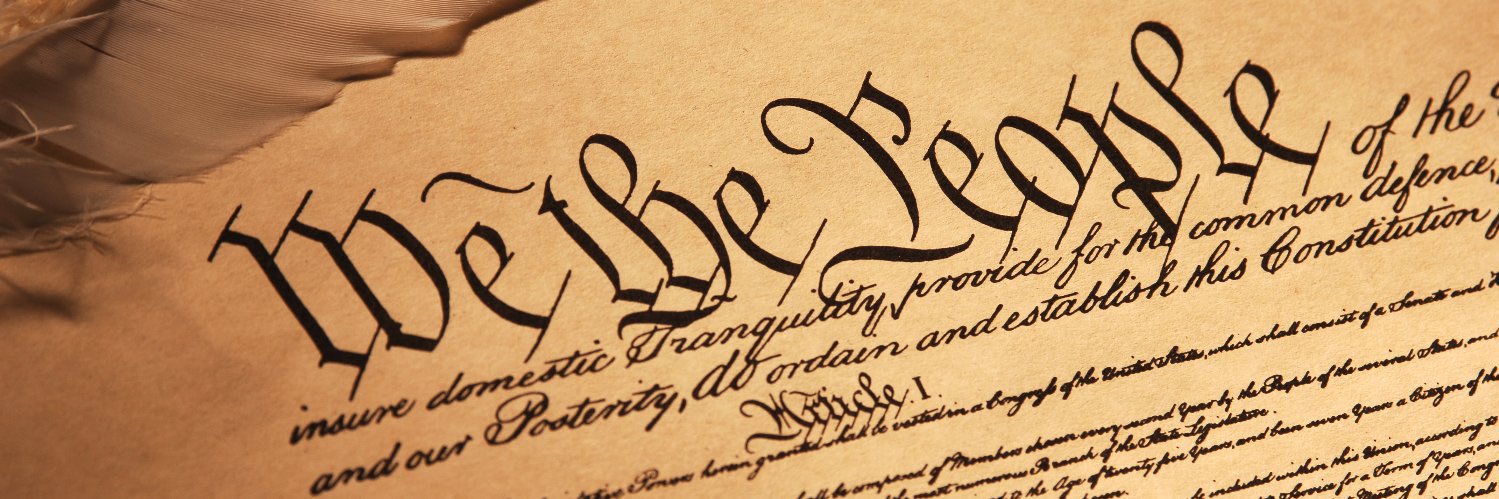 We the People of the
insure domestic Tranquility, provide for the common defence,
and our Posterity, do ordain and establish this Constitution
Article. I.
Powers herein granted shall be vested in a Congress of the United States, which shall consist of a Senate and
shall be composed of Members chosen every second Year by the People of the several States, and
most numerous Branch of the State Legislature.
to the Age of twenty five Years, and been seven Years a Citizen of the
be included within this Union, according to
Service for a Term of Years, and
Meeting of the Cong
shall